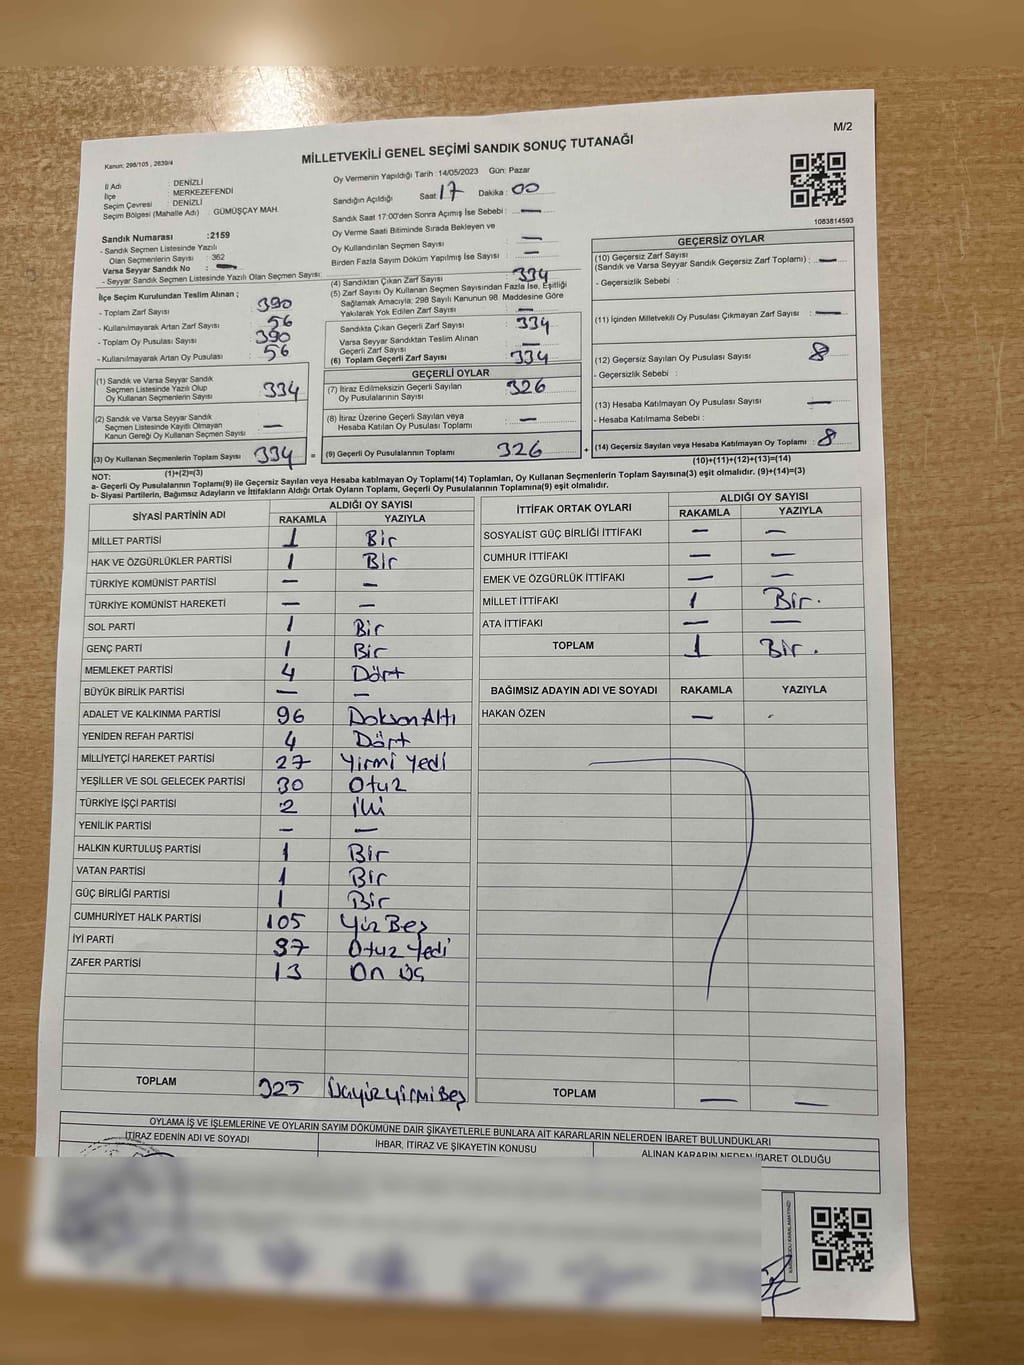 M/2
Kanun: 298/105 , 2839/4
MİLLETVEKİLİ GENEL SEÇİMİ SANDIK SONUÇ TUTANAĞI
İl Adı : DENİZLİ
İlçe : MERKEZEFENDİ
Seçim Çevresi : DENİZLİ
Seçim Bölgesi (Mahalle Adı) : GÜMÜŞÇAY MAH.
Sandık Numarası :2159
- Sandık Seçmen Listesinde Yazılı
Olan Seçmenlerin Sayısı : 362
Varsa Seyyar Sandık No : —
- Seyyar Sandık Seçmen Listesinde Yazılı Olan Seçmen Sayısı:
İlçe Seçim Kurulundan Teslim Alınan ;
- Toplam Zarf Sayısı : 390
- Kullanılmayarak Artan Zarf Sayısı : 56
- Toplam Oy Pusulası Sayısı : 390
- Kullanılmayarak Artan Oy Pusulası : 56
(1) Sandık ve Varsa Seyyar Sandık
Seçmen Listesinde Yazılı Olup
Oy Kullanan Seçmenlerin Sayısı : 334
(2) Sandık ve Varsa Seyyar Sandık
Seçmen Listesinde Kayıtlı Olmayan
Kanun Gereği Oy Kullanan Seçmen Sayısı : —
(3) Oy Kullanan Seçmenlerin Toplam Sayısı : 334
(1)+(2)=(3)
Oy Vermenin Yapıldığı Tarih :14/05/2023 Gün: Pazar
Sandığın Açıldığı Saat : 17 Dakika : 00
Sandık Saat 17:00'den Sonra Açımış İse Sebebi : —
Oy Verme Saati Bitiminde Sırada Bekleyen ve
Oy Kullandırılan Seçmen Sayısı : —
Birden Fazla Sayım Döküm Yapılmış İse Sayısı : —
(4) Sandıktan Çıkan Zarf Sayısı : 334
(5) Zarf Sayısı Oy Kullanan Seçmen Sayısından Fazla İse, Eşitliği
Sağlamak Amacıyla; 298 Sayılı Kanunun 98. Maddesine Göre
Yakılarak Yok Edilen Zarf Sayısı : —
Sandıkta Çıkan Geçerli Zarf Sayısı : 334
Varsa Seyyar Sandıktan Teslim Alınan
Geçerli Zarf Sayısı : —
(6) Toplam Geçerli Zarf Sayısı : 334
GEÇERLİ OYLAR
(7) İtiraz Edilmeksizin Geçerli Sayılan
Oy Pusulalarının Sayısı : 326
(8) İtiraz Üzerine Geçerli Sayılan veya
Hesaba Katılan Oy Pusulası Toplamı : —
= (9) Geçerli Oy Pusulalarının Toplamı : 326
1083814593
GEÇERSİZ OYLAR
(10) Geçersiz Zarf Sayısı
(Sandık ve Varsa Seyyar Sandık Geçersiz Zarf Toplamı) : —
- Geçersizlik Sebebi :
(11) İçinden Milletvekili Oy Pusulası Çıkmayan Zarf Sayısı : —
(12) Geçersiz Sayılan Oy Pusulası Sayısı : 8
- Geçersizlik Sebebi :
(13) Hesaba Katılmayan Oy Pusulası Sayısı : —
- Hesaba Katılmama Sebebi :
+ (14) Geçersiz Sayılan veya Hesaba Katılmayan Oy Toplamı : 8
(10)+(11)+(12)+(13)=(14)
NOT:
a- Geçerli Oy Pusulalarının Toplamı(9) ile Geçersiz Sayılan veya Hesaba Katılmayan Oy Toplamı(14) Toplamları, Oy Kullanan Seçmenlerin Toplam Sayısına(3) eşit olmalıdır. (9)+(14)=(3)
b- Siyasi Partilerin, Bağımsız Adayların ve İttifakların Aldığı Ortak Oyların Toplamı, Geçerli Oy Pusulalarının Toplamına(9) eşit olmalıdır.
SİYASİ PARTİNİN ADI ALDIĞI OY SAYISI
RAKAMLA YAZIYLA
MİLLET PARTİSİ 1 Bir
HAK VE ÖZGÜRLÜKLER PARTİSİ 1 Bir
TÜRKİYE KOMÜNİST PARTİSİ — —
TÜRKİYE KOMÜNİST HAREKETİ — —
SOL PARTİ 1 Bir
GENÇ PARTİ 1 Bir
MEMLEKET PARTİSİ 4 Dört
BÜYÜK BİRLİK PARTİSİ — —
ADALET VE KALKINMA PARTİSİ 96 Doksan Altı
YENİDEN REFAH PARTİSİ 4 Dört
MİLLİYETÇİ HAREKET PARTİSİ 27 Yirmi Yedi
YEŞİLLER VE SOL GELECEK PARTİSİ 30 Otuz
TÜRKİYE İŞÇİ PARTİSİ 2 İki
YENİLİK PARTİSİ — —
HALKIN KURTULUŞ PARTİSİ 1 Bir
VATAN PARTİSİ 1 Bir
GÜÇ BİRLİĞİ PARTİSİ 1 Bir
CUMHURİYET HALK PARTİSİ 105 Yüz Beş
İYİ PARTİ 37 Otuz Yedi
ZAFER PARTİSİ 13 On Üç
TOPLAM 325 Üçyüzyirmi Beş
İTTİFAK ORTAK OYLARI ALDIĞI OY SAYISI
RAKAMLA YAZIYLA
SOSYALİST GÜÇ BİRLİĞİ İTTİFAKI — —
CUMHUR İTTİFAKI — —
EMEK VE ÖZGÜRLÜK İTTİFAKI — —
MİLLET İTTİFAKI 1 Bir.
ATA İTTİFAKI — —
TOPLAM 1 Bir.
BAĞIMSIZ ADAYIN ADI VE SOYADI RAKAMLA YAZIYLA
HAKAN ÖZEN — -
TOPLAM — —
OYLAMA İŞ VE İŞLEMLERİNE VE OYLARIN SAYIM DÖKÜMÜNE DAİR ŞİKAYETLERLE BUNLARA AİT KARARLARIN NELERDEN İBARET BULUNDUKLARI
İTİRAZ EDENİN ADI VE SOYADI İHBAR, İTİRAZ VE ŞİKAYETİN KONUSU ALINAN KARARIN NEDEN İBARET OLDUĞU
KAREKODU KARALAMAYINIZ!